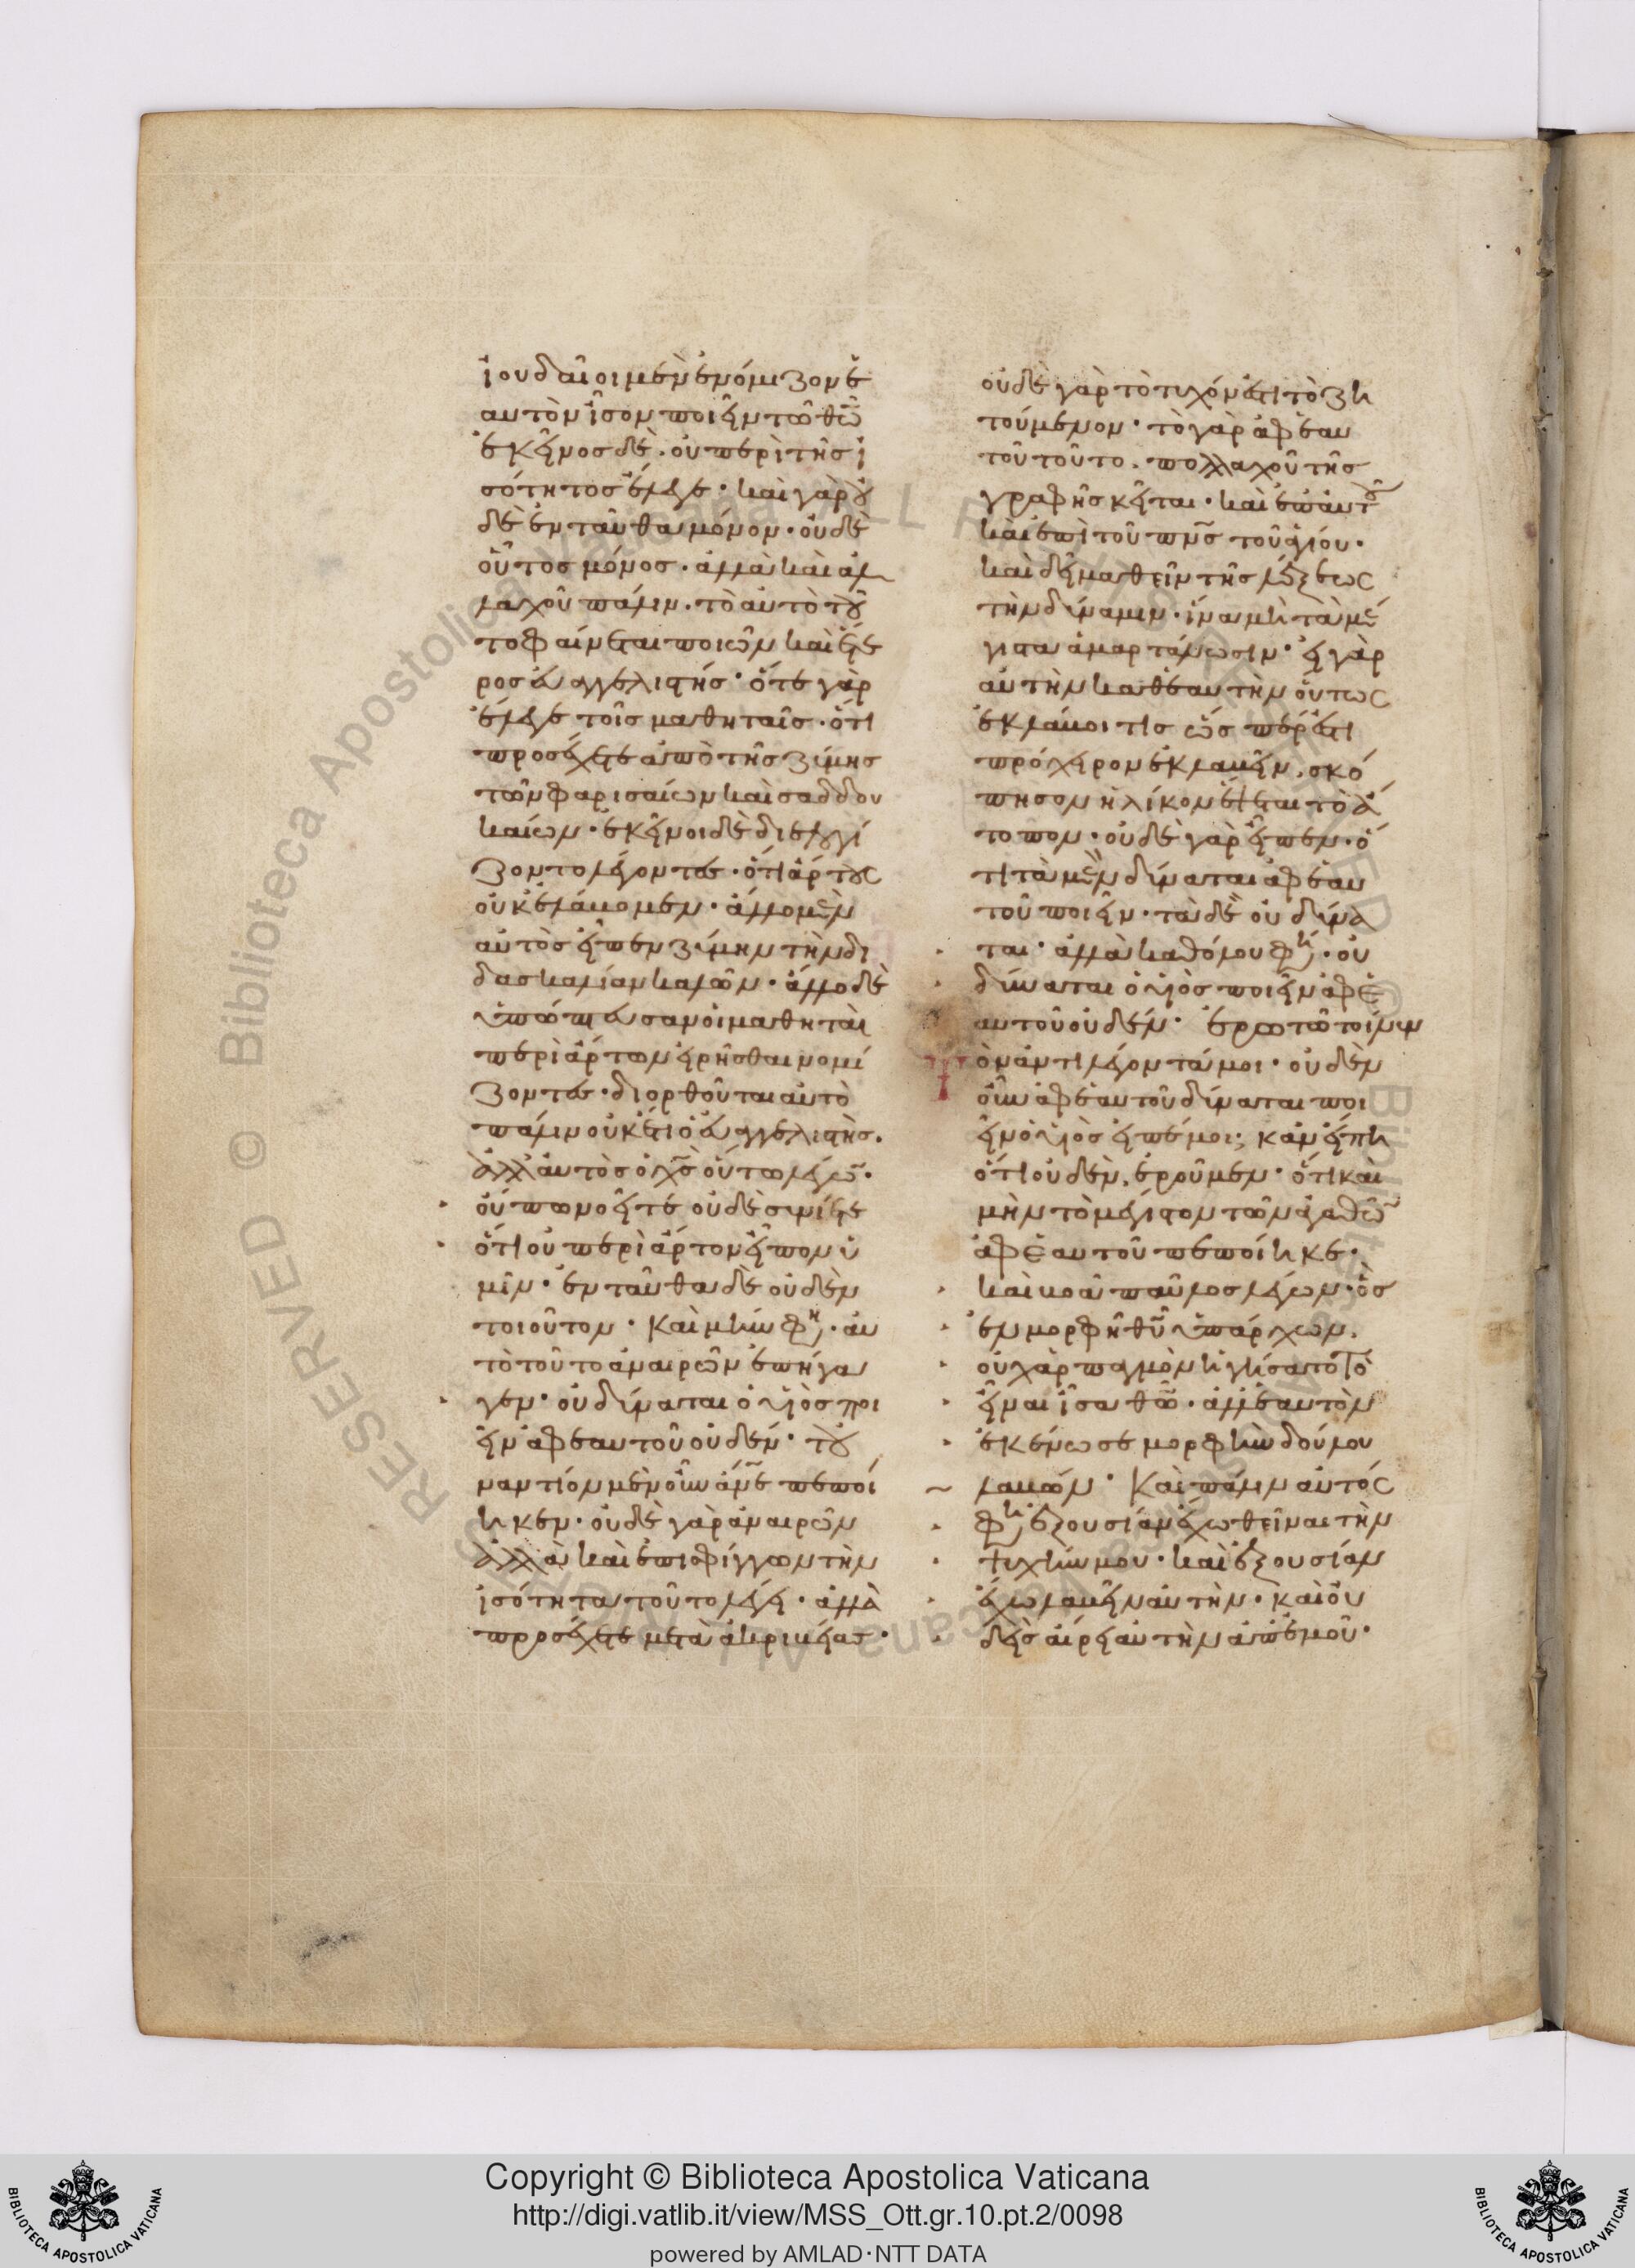 ἰουδαῖοι μὲν ἐνόμιζον ἑ
αυτὸν ἴσον ποιεῖν τῶ θῶ
ἐκεῖνος δὲ· οὐ περὶ τῆς ἰ
σότητος ἔλεγε· καὶ γὰρ οὐ
δὲ ἐνταῦθα μόνον· οὐδὲ
οὗτος μόνος· ἀλλὰ καὶ ἀλ
λαχοῦ πάλιν· τὸ αὐτὸ τοῦ
το φαίνεται ποιῶν καὶ ἕτε
ρος εὐαγγελιστής· ὅτε γὰρ
ἔλεγε τοῖς μαθηταῖς· ὅτι
προσέχετε ἀπὸ τῆς ζύμης
τῶν φαρισαίων καὶ σαδδου
καίων· ἐκεῖνοι δὲ διελογί
ζοντο λέγοντες· ὅτι ἄρτους
οὐκ ἐλάβομεν· ἄλλο μὲν
αὐτὸς εἶπεν ζύμην τὴν δι
δασκαλίαν καλῶν· ἄλλο δὲ
ὑπώπτευσαν οἱ μαθηταὶ
περὶ ἄρτων εἰρῆσθαι νομί
ζοντες· διορθοῦται αὐτὸ
πάλιν οὐκέτι ὁ εὐαγγελιστής.
ἀλλ' αὐτὸς ὁ χς οὕτω λέγων·
οὔπω νοεῖτε οὐδὲ συνίετε
ὅτι οὐ περὶ ἄρτον εἶπον ὑ
μῖν· ἐνταῦθα δὲ οὐδὲν
τοιοῦτον· Καὶ μὴν φη· αὐ
τὸ τοῦτο ἀναιρῶν ἐπήγα
γεν· οὐ δύναται ὁ υἱὸς ποι
εῖν ἀφ' ἑαυτοῦ οὐδέν· τοὐ
ναντίον μὲν οὖν ἄνε πεποί
ηκεν· οὐδὲ γὰρ ἀναιρῶν
ἀλλὰ καὶ ἐπισφίγγων τὴν
ἰσότητα τοῦτο λέγει· ἀλλὰ
προσέχετε μετὰ ἀκριβείας·
οὐδὲ γὰρ τὸ τυχόν ἐστι τὸ ζη
τούμενον· τὸ γὰρ ἀφ' ἑαυ
τοῦ τοῦτο. πολλαχοῦ τῆς
γραφῆς κεῖται· καὶ ἐπ' αὐτοῦ
καὶ ἐπὶ τοῦ πνς τοῦ ἁγίου·
καὶ δεῖ μαθεῖν τῆς λέξεως
τὴν δύναμιν· ἵνα μὴ τὰ μέ
γιστα ἁμαρτάνωσιν· εἰ γὰρ
αὐτὴν καθ' ἑαυτὴν οὕτως
ἐκλάβοι τις ὥς περ ἐστι
πρόχειρον ἐκλαβεῖν, σκό
πησον ἡλίκον ἔσται τὸ ἄ
τοπον· οὐδὲ γὰρ εἶπεν· ὅ
τι τὰ μὲν δύναται ἀφ' ἑαυ
τοῦ ποιεῖν· τὰ δὲ οὐ δύνα
ται· ἀλλὰ καθόλου φη· οὐ
δύναται ὁ υἱὸς ποιεῖν ἀφ' ἑ
αυτοῦ οὐδέν· ἐρωτῶ τοίνυν
ὃν ἀντιλέγοντά μοι· οὐδὲν
οὖν ἀφ' ἑαυτοῦ δύναται ποι
εῖν ὁ υἱὸς εἰπέ μοι; κἂν εἴπη
ὅτι οὐδὲν, ἐροῦμεν· ὅτι καὶ
μὴν τὸ μέγιστον τῶν ἀγαθῶν
ἀφ' ἑαυτοῦ πεποίηκε·
καὶ βοᾶ παῦλος λέγων· ὃς
ἐν μορφῆ θυ ὑπάρχων.
οὐχ ἁρπαγμὸν ἡγήσατο τὸ
εἶναι ἴσα θῶ· ἀλλ' ἑαυτὸν
ἐκένωσε μορφὴν δούλου
λαβών· Καὶ πάλιν αὐτός
φη ἐξουσίαν ἔχω θεῖναι τὴν
ψυχήν μου· καὶ ἐξουσίαν
ἔχω λαβεῖν αὐτήν· καὶ οὐ
δεὶς αἴρει αὐτὴν ἀπ' ἐμοῦ·
Copyright © Biblioteca Apostolica Vaticana
http://digi.vatlib.it/view/MSS_Ott.gr.10.pt.2/0098
powered by AMLAD·NTT DATA